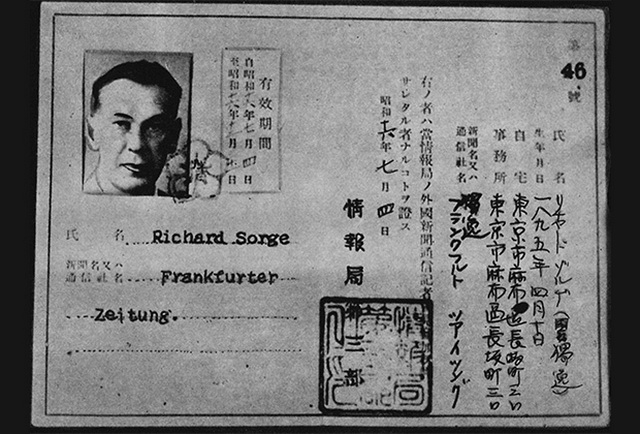 第
46
號
氏名 リヒャルド ゾルゲ (男 獨逸)
生年月日 一八九五年 四月十日
自宅 東京市麻布區長坂町三〇
事務所 東京市麻布區長坂町三〇
新聞名又ハ
通信社名
獨逸
フランクフルト ツアイツング
右ノ者ハ當情報局ノ外國新聞通信記者
サレタル者ナルコトヲ證ス
昭和十六年七月四日
情報局第三部
有效期間
自昭和十六年七月四日
至昭和十六年
氏名 Richard Sorge
新聞名又ハ
通信社名
Frankfurter
Zeitung.